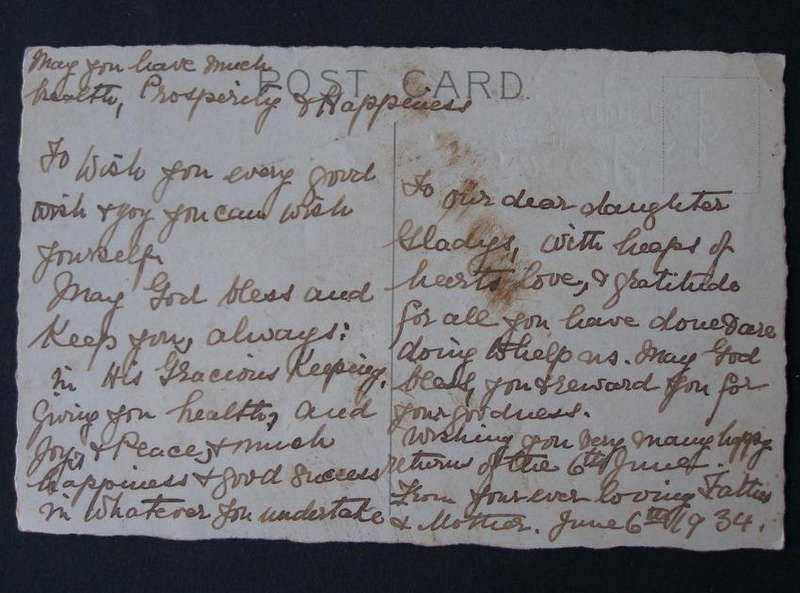 POST CARD
May you have much
health, Prosperity & Happiness
To Wish you every good
wish & joy you can wish
yourself.
May God bless and
Keep you, always:
in His Gracious Keeping,
Giving you health, and
Joy, & Peace, & much
happiness & good success
in whatever you undertake
To our dear daughter
Gladys, with heaps of
hearts love, & gratitude
for all you have done & are
doing to help us. May God
bless, you & reward you for
your goodness.
Wishing you very many happy
returns of the 6th June.
From your ever loving Father
& Mother. June 6th 1934.